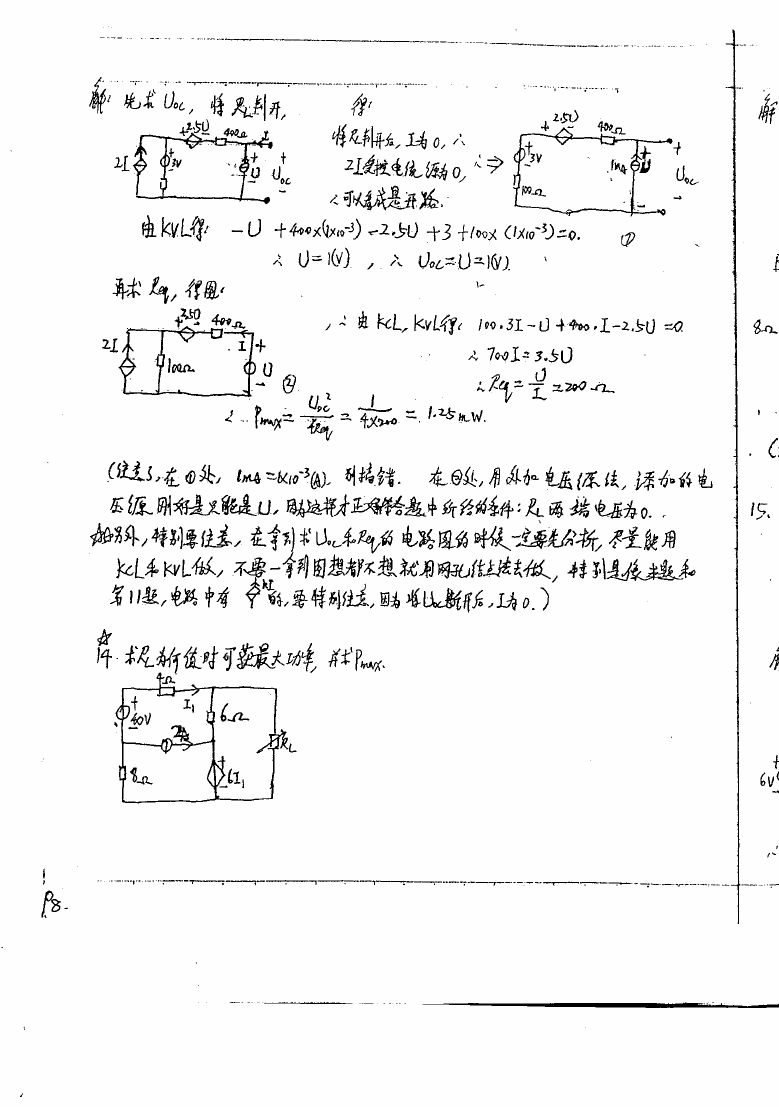 解: 先求Uoc, 将RL判开, 得:
2.5U 400Ω I
2I 3V U Uoc
将RL判开后, I为0, ∴
2I受控电流源为0,
∴可以看成是开路.
∴⇒
2.5U 400Ω
3V 1mA U Uoc
100Ω
由KVL得: -U +400×(1×10⁻³) -2.5U +3 +100×(1×10⁻³)=0. ①
∴ U=1(V) , ∴ Uoc=U=1(V).
再求Req, 得图:
400Ω
2I 100Ω I U ②
, ∴由KCL, KVL得: 100·3I-U+400·I-2.5U=0
∴ 700I=3.5U
∴Req=U/I=200Ω
∴ Pmax=Uoc²/4Req=1/4×200=1.25mW.
(注意, 在①处, 1mA=1×10⁻³(A). 别搞错. 在②处, 用外加电压源法, 添加的电
压源刚好是只能是U, 因为这样才正确符合题中所给的条件: RL两端电压为0..
另外, 特别要注意, 在拿到求Uoc和Req的电路图的时候一定要先分析, 尽量能用
KCL和KVL做, 不要一拿到图想都不想就用网孔结点法去做, 特别是像本题和
第11题, 电路中有 KI 的, 要特别注意, 因为将断开后, I为0.)
☆
14. 求RL为何值时可获最大功率, 并求Pmax.
4Ω
I₁
40V 6Ω
2A RL
8Ω 6I₁
P8.
解
8Ω
15.
6V